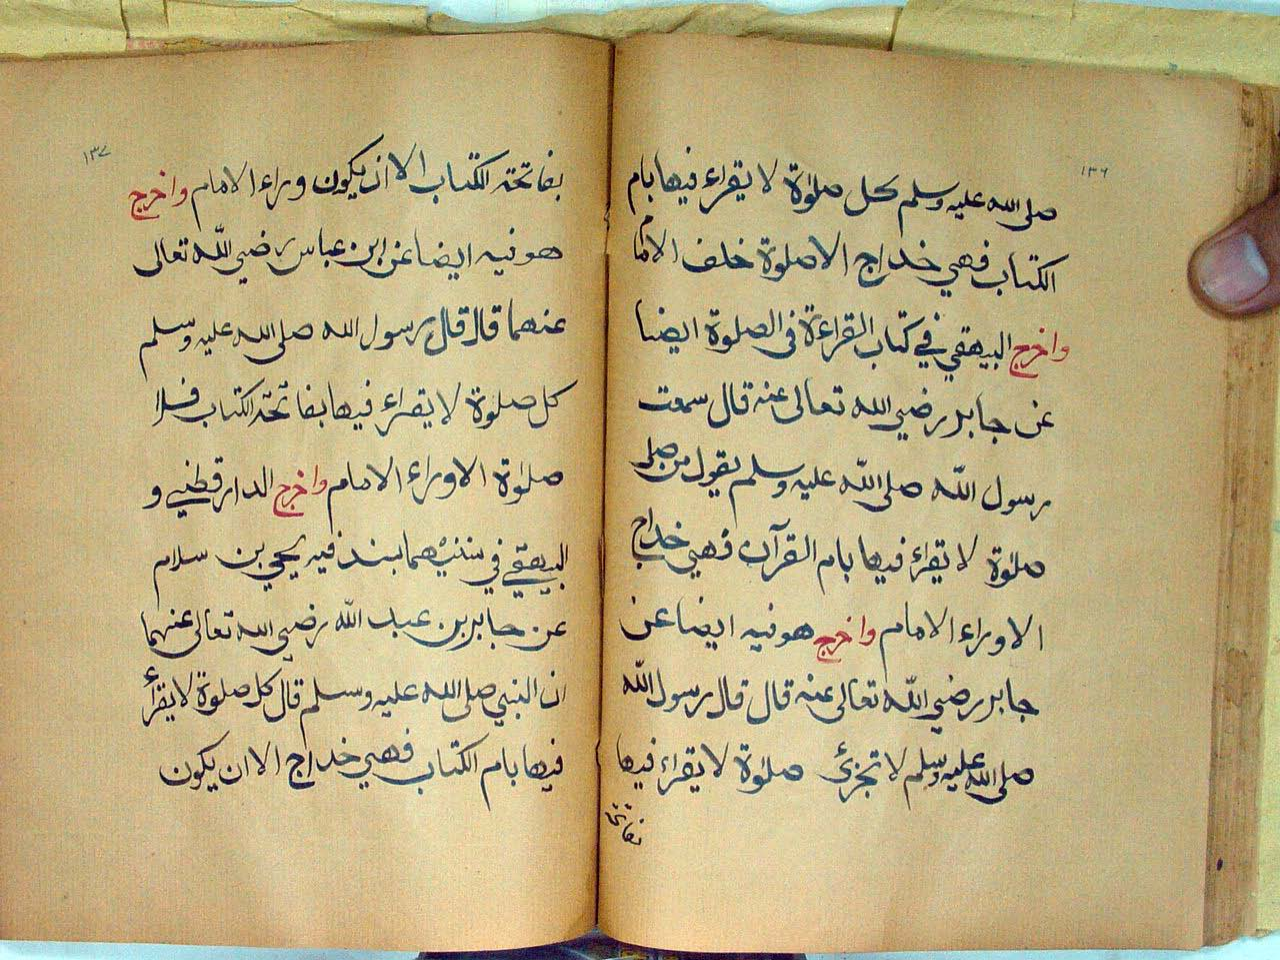 ١٣٦
صلى الله عليه وسلم كل صلوة لا يقراء فيها بام
الكتاب فهي خداج الا صلوة خلف الامام
واخرج البيهقي في كتاب القراءة فى الصلوة ايضا
عن جابر رضي الله تعالى عنه قال سمعت
رسول الله صلى الله عليه وسلم يقول من صلى
صلوة لا يقراء فيها بام القرآن فهي خداج
الا وراء الامام واخرج هو فيه ايضا عن
جابر رضي الله تعالى عنه قال قال رسول الله
صلى الله عليه وسلم لا تجزئ صلوة لا يقراء فيها
بفاتحة
١٣٧
بفاتحة الكتاب الا ان يكون وراء الامام واخرج
هو فيه ايضا عن ابن عباس رضي الله تعالى
عنهما قال قال رسول الله صلى الله عليه وسلم
كل صلوة لا يقراء فيها بفاتحة الكتاب فلا
صلوة الا وراء الامام واخرج الدارقطني و
البيهقي في سننيهما بسند فيه يحيى بن سلام
عن جابر بن عبد الله رضي الله تعالى عنهما
ان النبي صلى الله عليه وسلم قال كل صلوة لا يقرأ
فيها بام الكتاب فهي خداج الا ان يكون